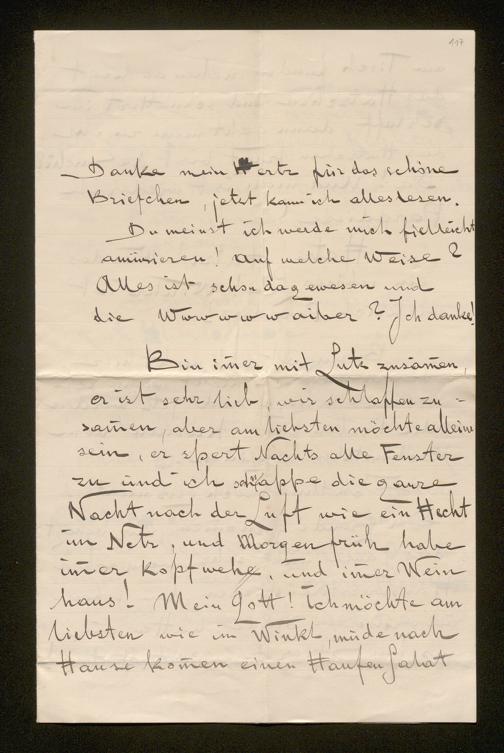 117
– Danke mein Hertz für das schöne
Briefchen, jetzt kann ich alles lesen.
Du meinst ich werde mich fielleicht
amüsieren! Auf welche Weise?
Alles ist schon dagewesen und
die Wwwwwaiber? Ich danke!
Bin im̄er mit Lutz zusam̄en,
er ist sehr lieb, wir schlaffen zu =
sam̄en, aber am liebsten möchte alleine
sein, er spert Nachts alle Fenster
zu und ich schappe die ganze
Nacht nach der Luft wie ein Hecht
im Netz, und Morgen früh habe
im̄er Kopfwehe, und im̄er Wein
haus! Mein Gott! Ich möchte am
liebsten wie im Winkl, müde nach
Hause kom̄en einen Haufen Salat